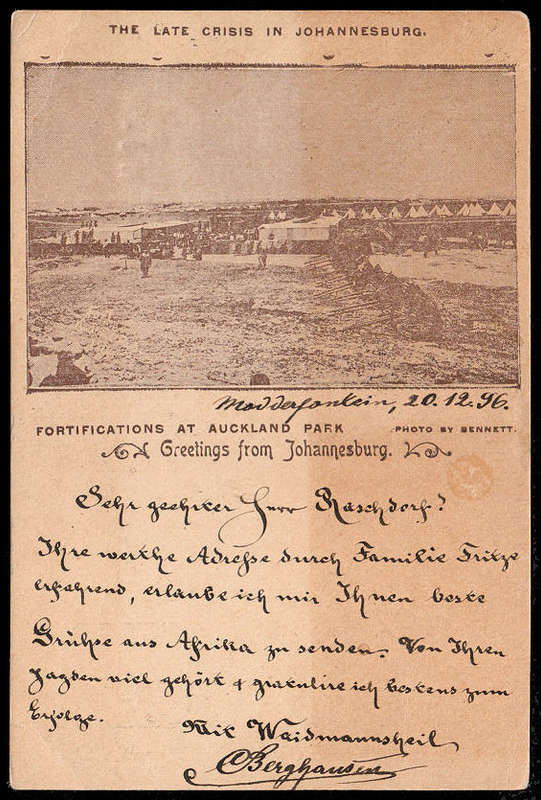 THE LATE CRISIS IN JOHANNESBURG.
Modderfontein, 20.12.96.
FORTIFICATIONS AT AUCKLAND PARK
PHOTO BY BENNETT.
Greetings from Johannesburg.
Sehr geehrter Herr Raschdorf!
Ihre werthe Adresse durch Familie Fritze
erfahrend, erlaube ich mir Ihnen beste
Grüße aus Afrika zu senden. Von Ihren
Jagden viel gehört & gratulire ich bestens zum
Erfolge.
Mit Waidmannsheil
CBerghausen